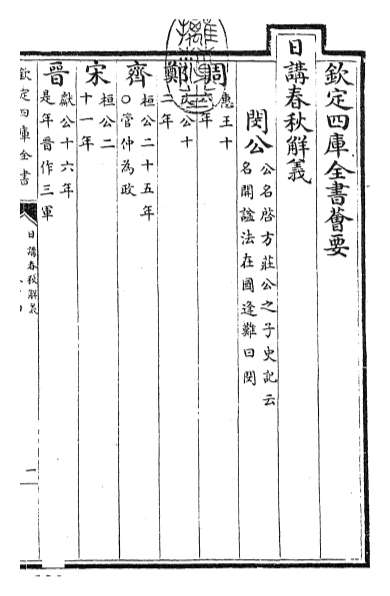 欽定四庫全書薈要
日講春秋解義
閔公
公名啓方莊公之子史記云
名開諡法在國逢難曰閔
周
惠王十
年
鄭
公十
二年
齊
桓公二十五年
○管仲為政
宋
桓公二
十一年
晉
獻公十六年
是年晉作三軍
欽定四庫全書
日講春秋解義
一